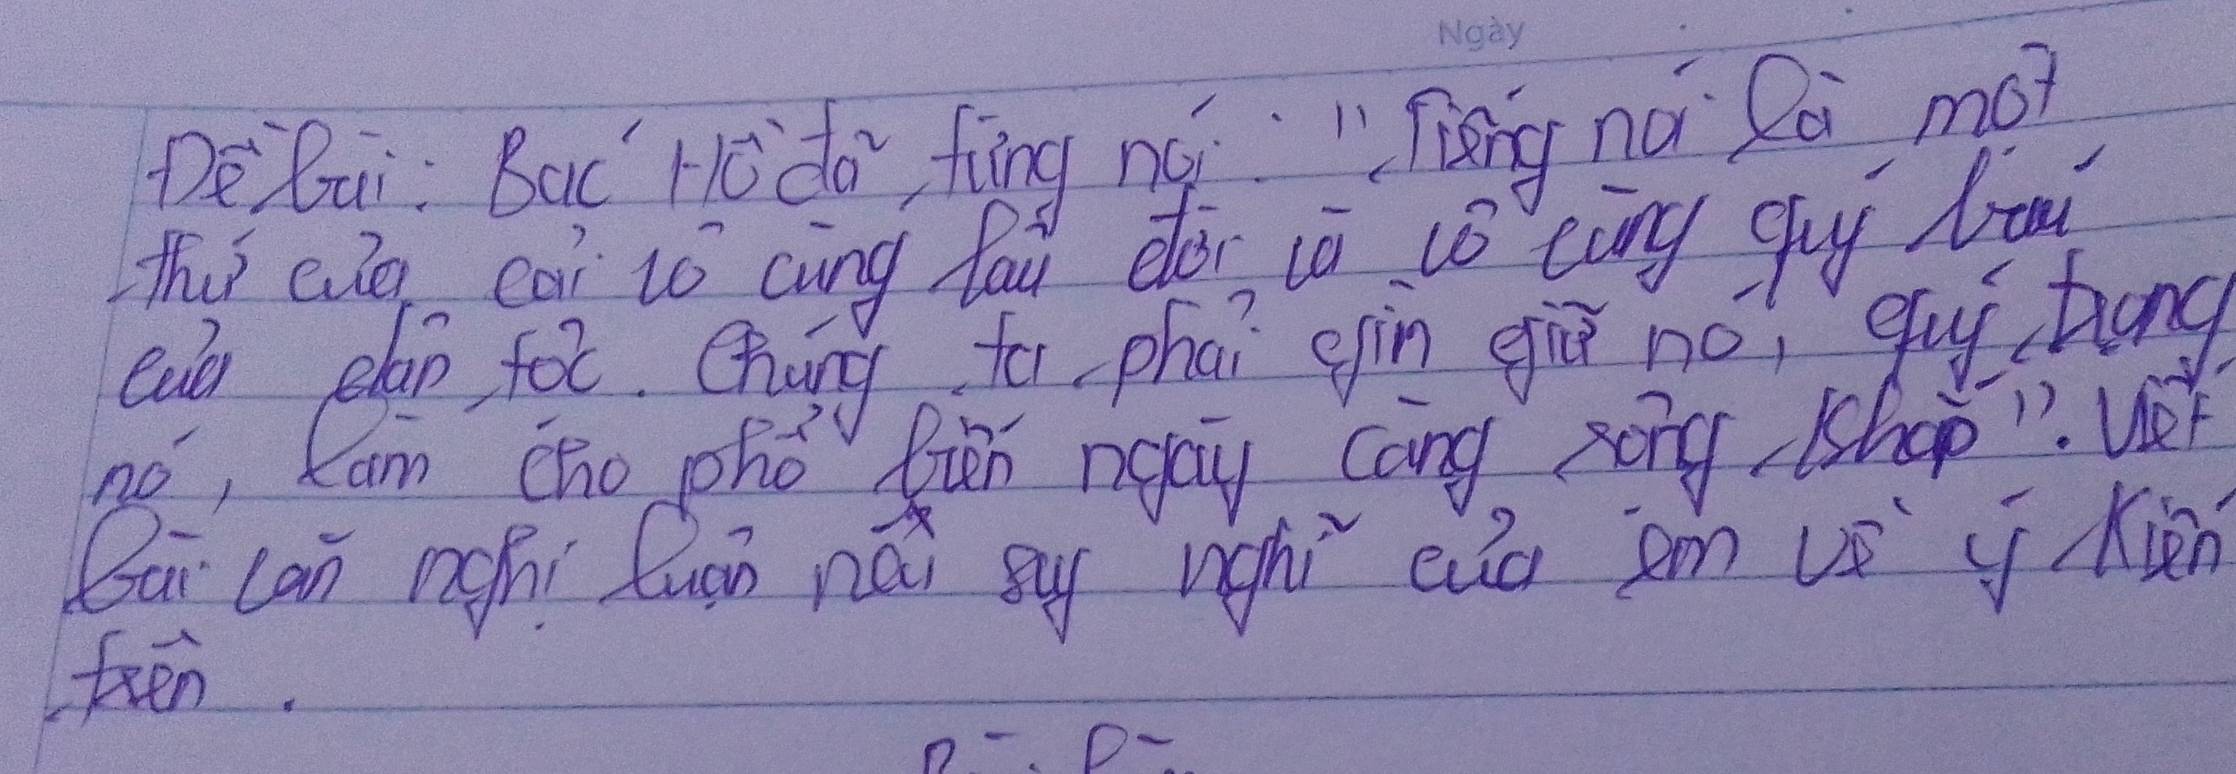 Ngày
Đề bài: Bác Hồ đã từng nói: "Tiếng nói là một
thứ của cải vô cùng lâu đời và vô cùng quý báu
của dân tộc. Chúng ta phải gìn giữ nó, quý trọng
nó, làm cho phổ biến ngày càng rộng khắp". Viết
bài văn nghị luận nói suy nghĩ của em về ý kiến
trên.